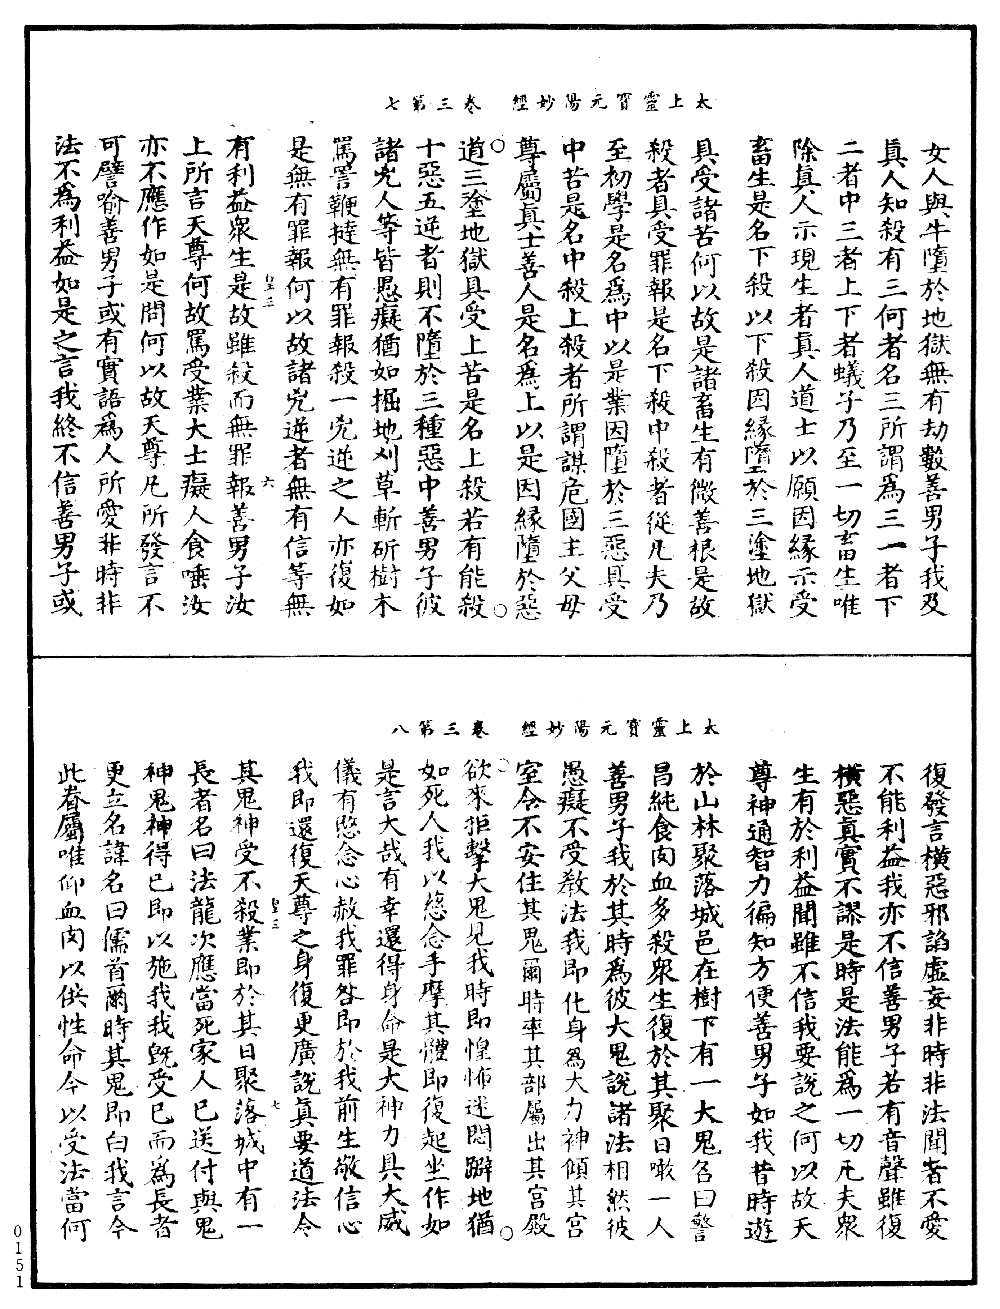 太上靈寶元陽妙經　卷三第七
女人與牛墮於地獄無有劫數善男子我及
真人知殺有三何者名三所謂為三一者下
二者中三者上下者蟻子乃至一切畜生唯
除真人示現生者真人道士以願因緣示受
畜生是名下殺以下殺因緣墮於三塗地獄
具受諸苦何以故是諸畜生有微善根是故
殺者具受罪報是名下殺中殺者從凡夫乃
至初學是名為中以是業因墮於三惡具受
中苦是名中殺上殺者所謂謀危國主父母
尊屬真士善人是名為上以是因緣墮於惡
道三塗地獄具受上苦是名上殺若有能殺
十惡五逆者則不墮於三種惡中善男子彼
諸兇人等皆愚癡猶如掘地刈草斬斫樹木
罵詈鞭撻無有罪報殺一兇逆之人亦復如
是無有罪報何以故諸兇逆者無有信等無
皇三　六
有利益眾生是故雖殺而無罪報善男子汝
上所言天尊何故罵受業大士癡人食唾汝
亦不應作如是問何以故天尊凡所發言不
可譬喻善男子或有實語為人所愛非時非
法不為利益如是之言我終不信善男子或
太上靈寶元陽妙經　卷三第八
復發言橫惡邪諂虛妄非時非法聞者不愛
不能利益我亦不信善男子若有音聲雖復
橫惡真實不謬是時是法能為一切凡夫眾
生有於利益聞雖不信我要說之何以故天
尊神通智力徧知方便善男子如我昔時遊
於山林聚落城邑在樹下有一大鬼名曰警
昌純食肉血多殺眾生復於其聚日噉一人
善男子我於其時為彼大鬼說諸法相然彼
愚癡不受教法我即化身為大力神傾其宮
室令不安住其鬼爾時率其部屬出其宮殿
欲來拒擊大鬼見我時即惶怖迷悶躃地猶
如死人我以慈念手摩其體即復起坐作如
是言大哉有幸還得身命是大神力具大威
儀有愍念心赦我罪咎即於我前生敬信心
我即還復天尊之身復更廣說真要道法令
皇三　七
其鬼神受不殺業即於其日聚落城中有一
長者名曰法龍次應當死家人已送付與鬼
神鬼神得已即以施我我既受已而為長者
更立名諱名曰儒首爾時其鬼即白我言今
此眷屬唯仰血肉以供性命今以受法當何
0151